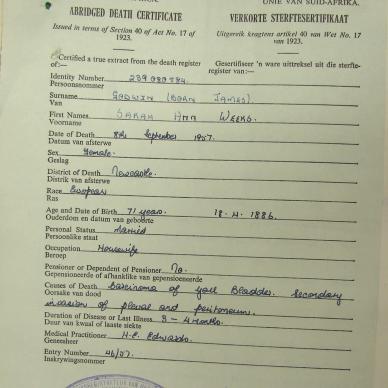 UNIE VAN SUID-AFRIKA.
ABRIDGED DEATH CERTIFICATE VERKORTE STERFTESERTIFIKAAT
Issued in terms of Section 40 of Act No. 17 of 1923. Uitgereik kragtens artikel 40 van Wet No. 17 van 1923.
Certified a true extract from the death register of:— Gesertifiseer 'n ware uittreksel uit die sterfteregister van:—
Identity Number 239 080 784.
Persoonsnommer
Surname GODWIN (BORN JAMES)
Van
First Names SARAH ANN WEEKS.
Voorname
Date of Death 8th September 1957.
Datum van afsterwe
Sex Female.
Geslag
District of Death Newcastle.
Distrik van afsterwe
Race European
Ras
Age and Date of Birth 71 years. 18-4-1886.
Ouderdom en datum van geboorte
Personal Status Married
Persoonlike staat
Occupation Housewife
Beroep
Pensioner or Dependent of Pensioner No.
Gepensioeneerde of afhanklike van gepensioeneerde
Causes of Death Carcinoma of gall Bladder. Secondary
Oorsake van dood
invasion of pleural and peritoneum.
Duration of Disease or Last Illness 3-4 months.
Duur van kwaal of laaste siekte
Medical Practitioner H.C. Edwards.
Geneesheer
Entry Number 46/57.
Inskrywingsnommer